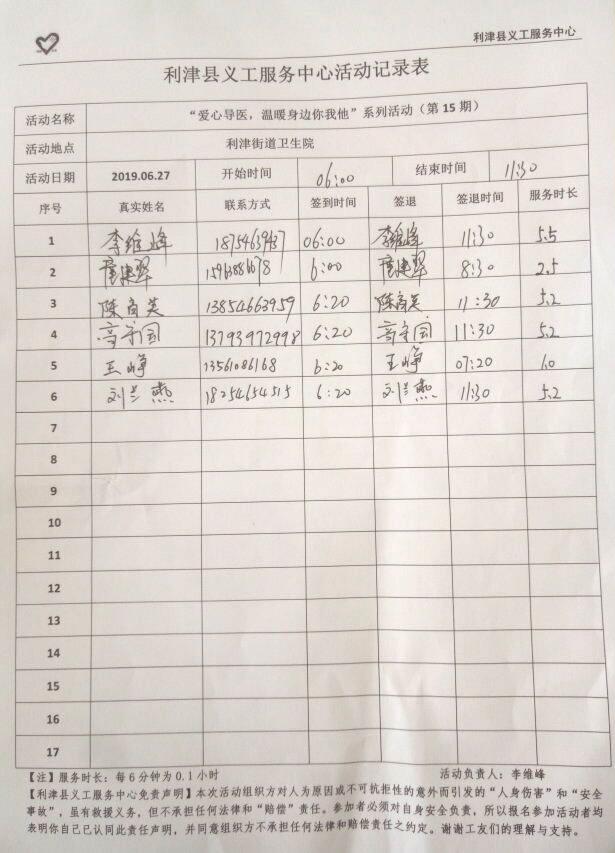 利津县义工服务中心
利津县义工服务中心活动记录表
活动名称 “爱心导医，温暖身边你我他”系列活动（第15期）
活动地点 利津街道卫生院
活动日期 2019.06.27 开始时间 06:00 结束时间 11:30
序号 真实姓名 联系方式 签到时间 签退 签退时间 服务时长
1 李维峰 06:00 李维峰 11:30 5.5
2 6:00 8:30 2.5
3 陈商英 13854663959 6:20 陈商英 11:30 5.2
4 高守国 13793972998 6:20 高守国 11:30 5.2
5 王峥 13561086168 6:20 王峥 07:20 1.0
6 刘兰燕 18254654515 6:20 刘兰燕 11:30 5.2
7
8
9
10
11
12
13
14
15
16
17
【注】服务时长：每6分钟为0.1小时 活动负责人：李维峰
【利津县义工服务中心免责声明】本次活动组织方对人为原因或不可抗拒性的意外而引发的“人身伤害”和“安全
事故”，虽有救援义务，但不承担任何法律和“赔偿”责任。参加者必须对自身安全负责，所以报名参加活动者均
表明你自己已认同此责任声明，并同意组织方不承担任何法律和赔偿责任之约定。谢谢工友们的理解与支持。